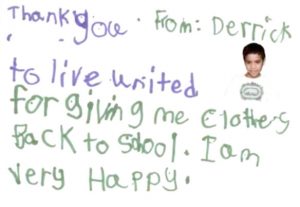 Thank you. From: Derrick
to live united
for giving me Clothes
Back to School. I am
very Happy.